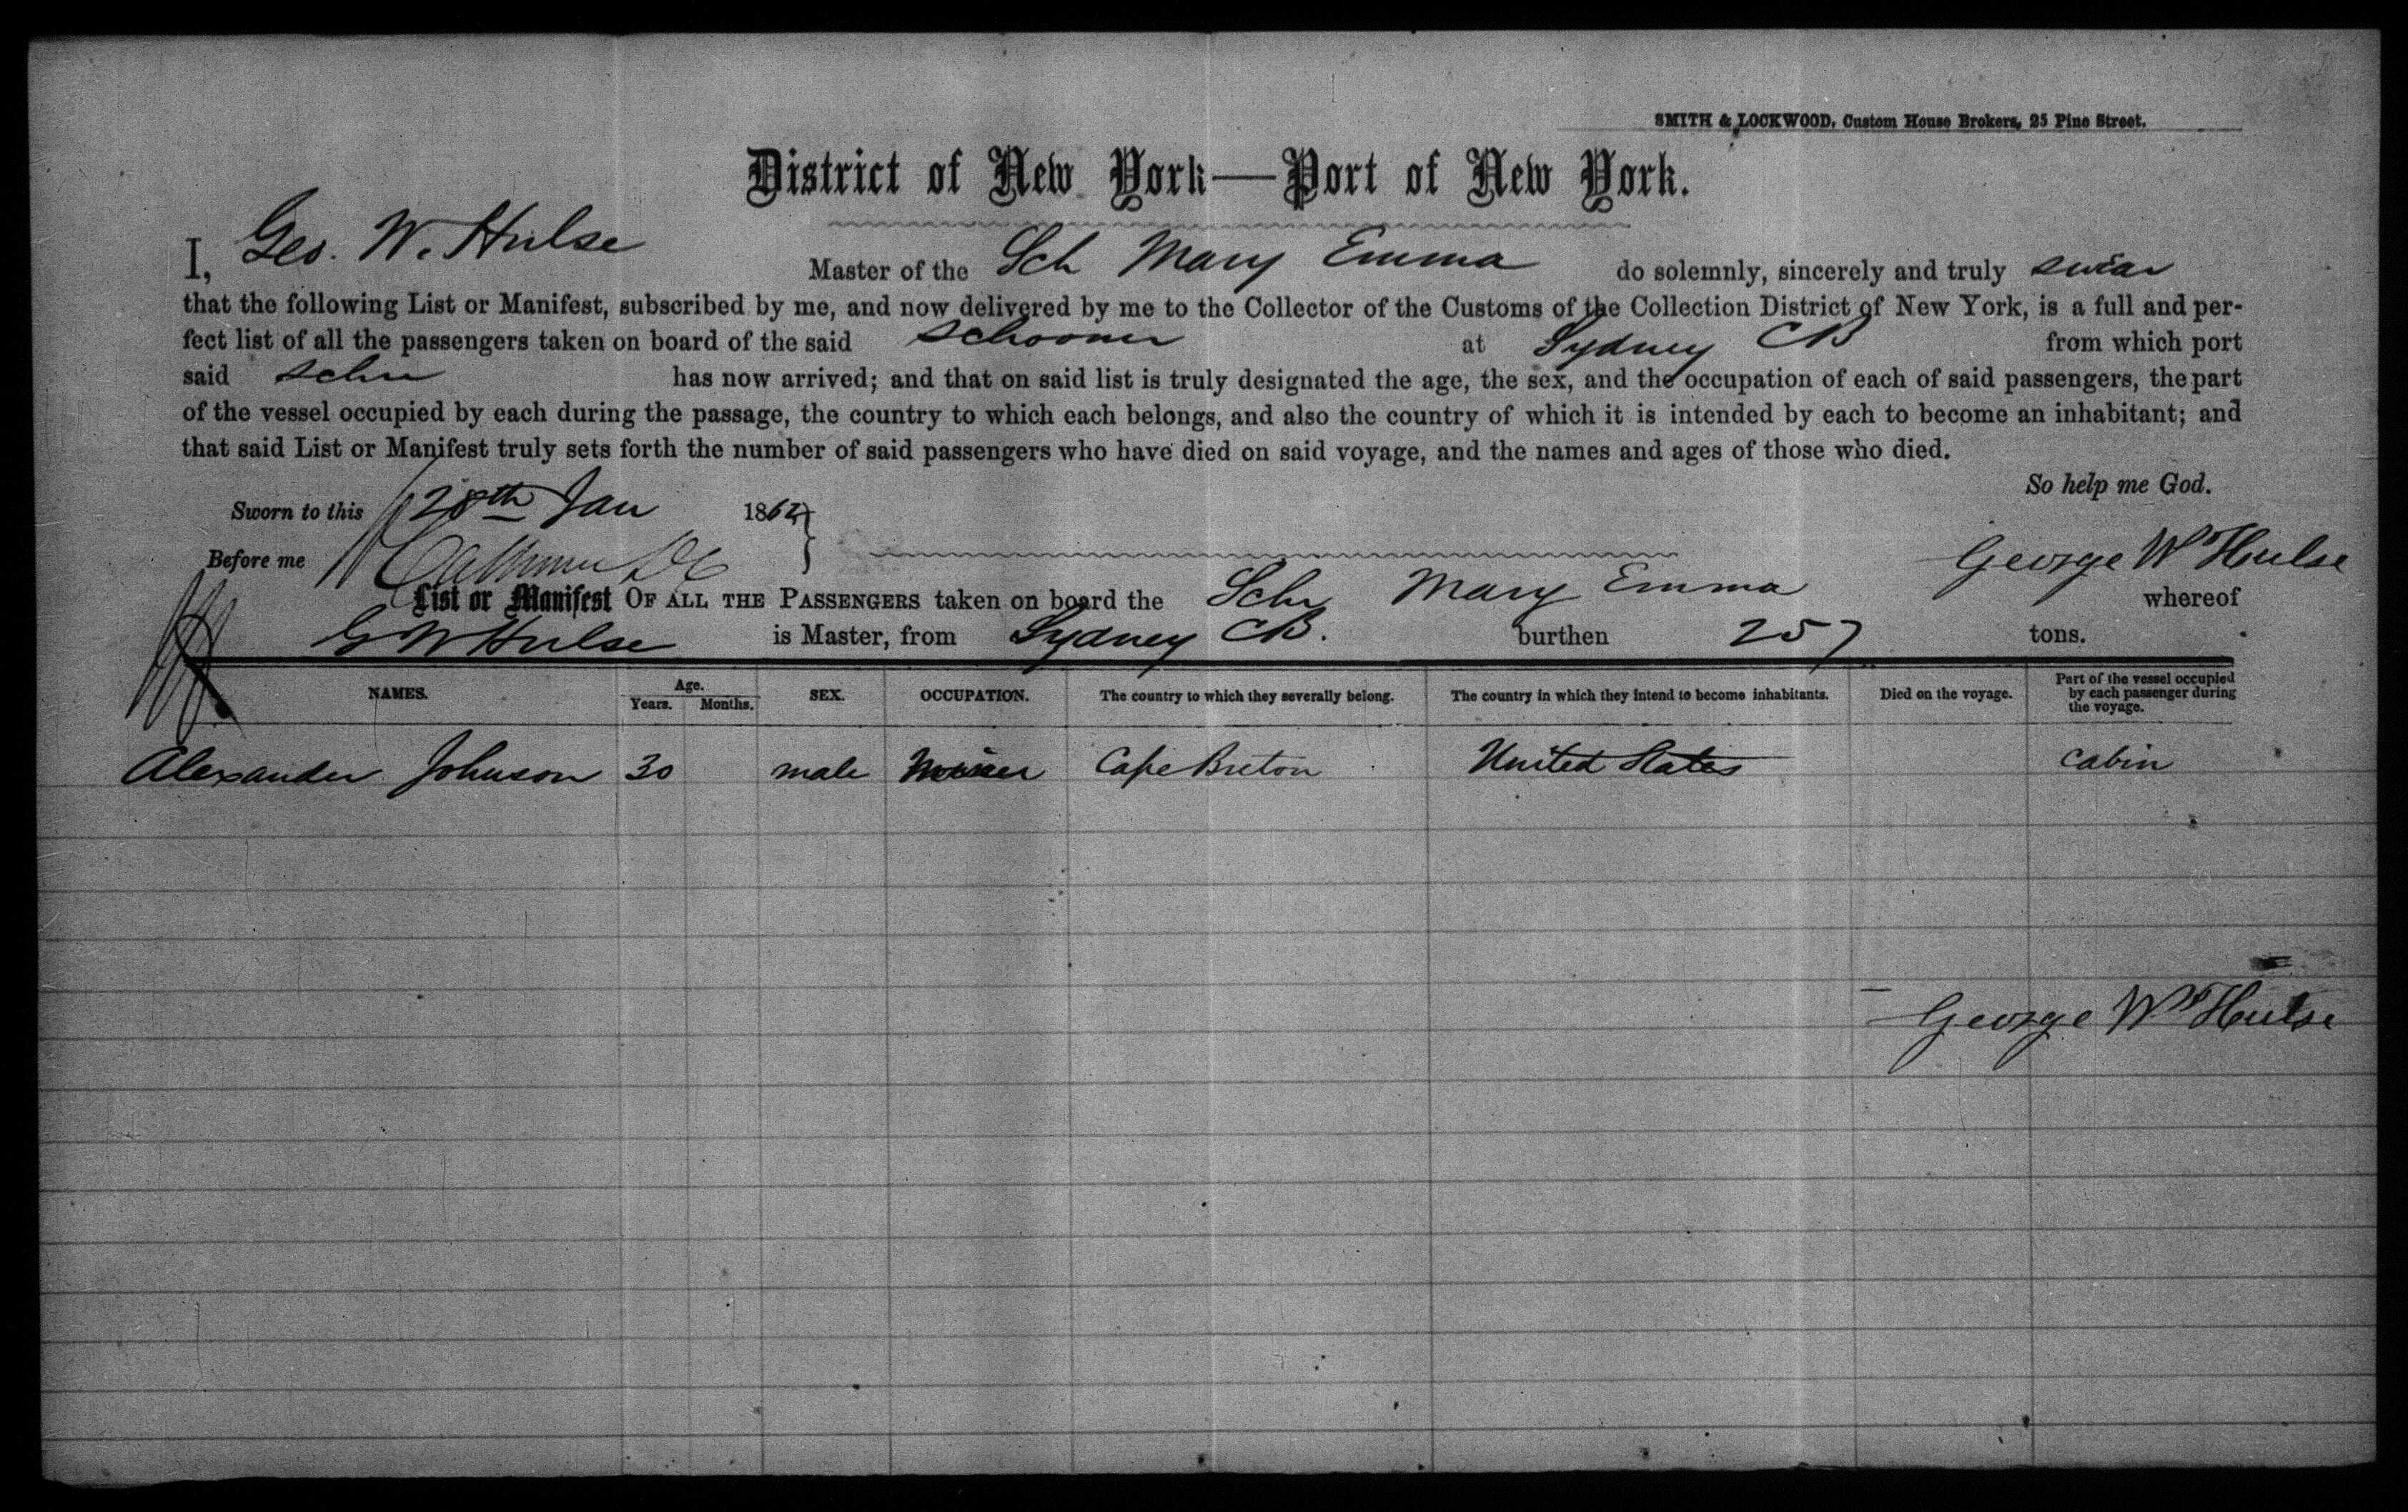 SMITH & LOCKWOOD, Custom House Brokers, 25 Pine Street.
District of New York—Port of New York.
I, Geo. W. Hulse Master of the Sch Mary Emma do solemnly, sincerely and truly swear
that the following List or Manifest, subscribed by me, and now delivered by me to the Collector of the Customs of the Collection District of New York, is a full and per-
fect list of all the passengers taken on board of the said Schooner at Sydney CB from which port
said schr has now arrived; and that on said list is truly designated the age, the sex, and the occupation of each of said passengers, the part
of the vessel occupied by each during the passage, the country to which each belongs, and also the country of which it is intended by each to become an inhabitant; and
that said List or Manifest truly sets forth the number of said passengers who have died on said voyage, and the names and ages of those who died.
So help me God.
Sworn to this 28th Jan 1862
Before me George W Hulse
List or Manifest OF ALL THE PASSENGERS taken on board the Schr Mary Emma whereof
G W Hulse is Master, from Sydney CB. burthen 257 tons.
NAMES. Age. Years. Months. SEX. OCCUPATION. The country to which they severally belong. The country in which they intend to become inhabitants. Died on the voyage. Part of the vessel occupied by each passenger during the voyage.
Alexander Johnson 30 male Miner Cape Breton United States Cabin
George W Hulse